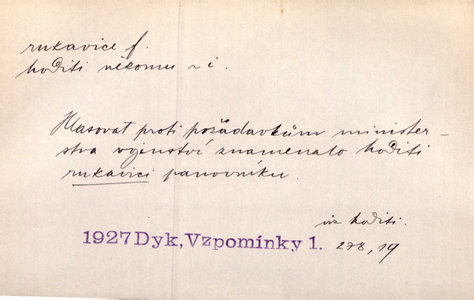 rukavice f.
hoditi někomu ~ i.
Hlasovat proti požadavkům minister-
stva vojenství znamenalo hoditi
rukavici panovníku.
viz hoditi.
1927 Dyk, Vzpomínky 1. 278, 19